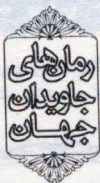 رمان‌های
جاویدان
جهان